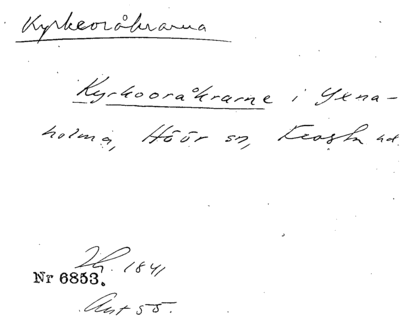 Kyrkeoråkrarna
Kyrkooråkrarne i Yxna-
holma, Höör sn, Frosta hd.
Lh. 1841
Nr 6853.
Ant 55.